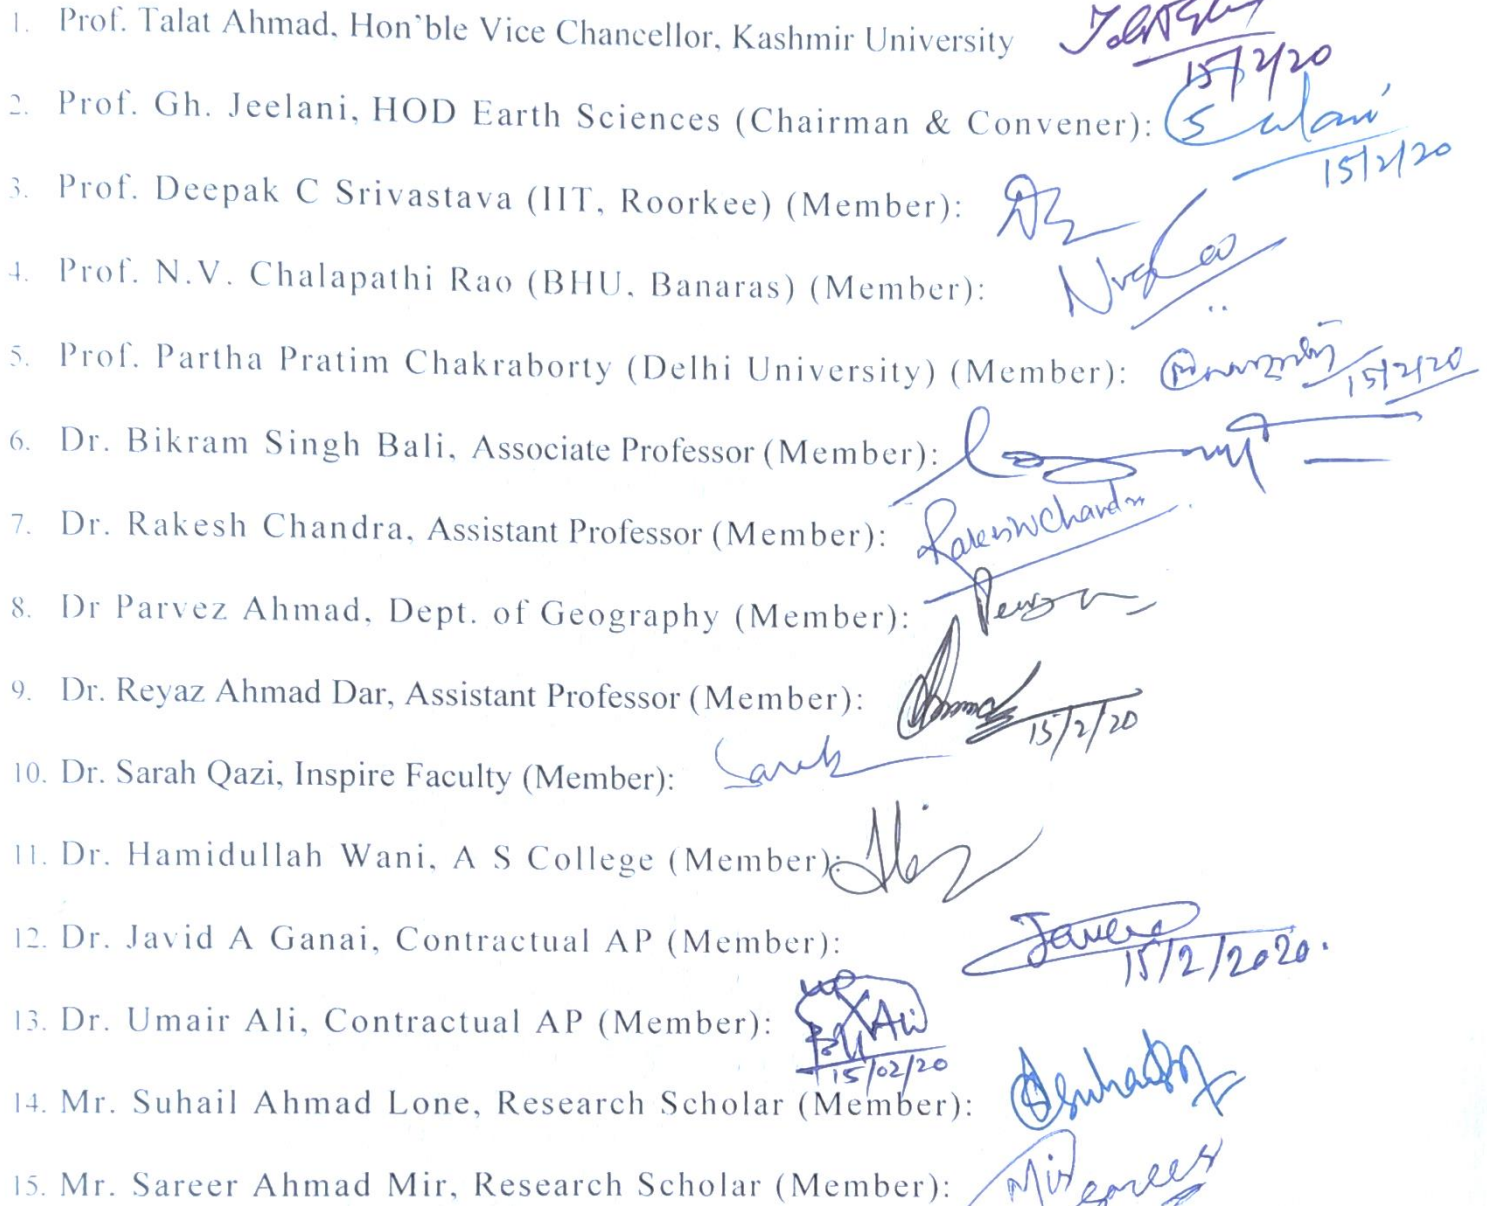 1. Prof. Talat Ahmad, Hon'ble Vice Chancellor, Kashmir University
15/2/20
2. Prof. Gh. Jeelani, HOD Earth Sciences (Chairman & Convener):
15/2/20
3. Prof. Deepak C Srivastava (IIT, Roorkee) (Member):
4. Prof. N.V. Chalapathi Rao (BHU, Banaras) (Member):
5. Prof. Partha Pratim Chakraborty (Delhi University) (Member): 15/2/20
6. Dr. Bikram Singh Bali, Associate Professor (Member):
7. Dr. Rakesh Chandra, Assistant Professor (Member):
8. Dr Parvez Ahmad, Dept. of Geography (Member):
9. Dr. Reyaz Ahmad Dar, Assistant Professor (Member):
15/2/20
10. Dr. Sarah Qazi, Inspire Faculty (Member):
11. Dr. Hamidullah Wani, A S College (Member):
12. Dr. Javid A Ganai, Contractual AP (Member):
15/2/2020.
13. Dr. Umair Ali, Contractual AP (Member): Ali
15/02/20
14. Mr. Suhail Ahmad Lone, Research Scholar (Member):
15. Mr. Sareer Ahmad Mir, Research Scholar (Member): Mir